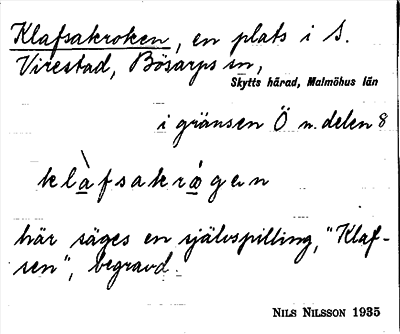 Klafsakroken, en plats i S.
Virestad, Bösarps sn,
Skytts härad, Malmöhus län
i gränsen Ö n. delen 8
klàfsakrågen
här säges en självspilling, "Klaf-
sen", begravd.
NILS NILSSON 1935